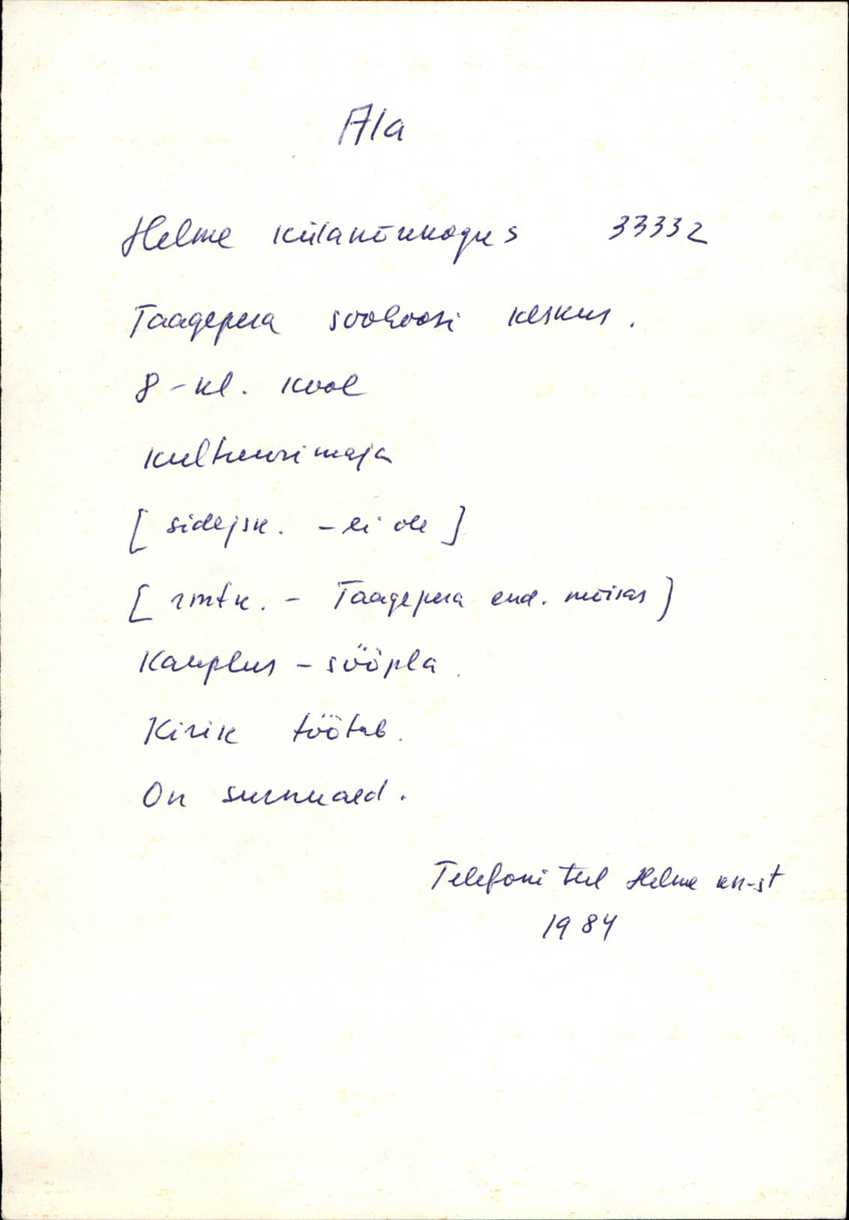 Ala
Helme külanõukogus 33332
Taagepera sovhoosi keskus.
8-kl. kool
kultuurimaja
[ sidejsk. - ei ole ]
[ rmtk. - Taagepera end. mõisas ]
Kauplus - sööpla.
Kirik töötab.
On surnuaed.
Telefoni teel Helme kn-st
1984